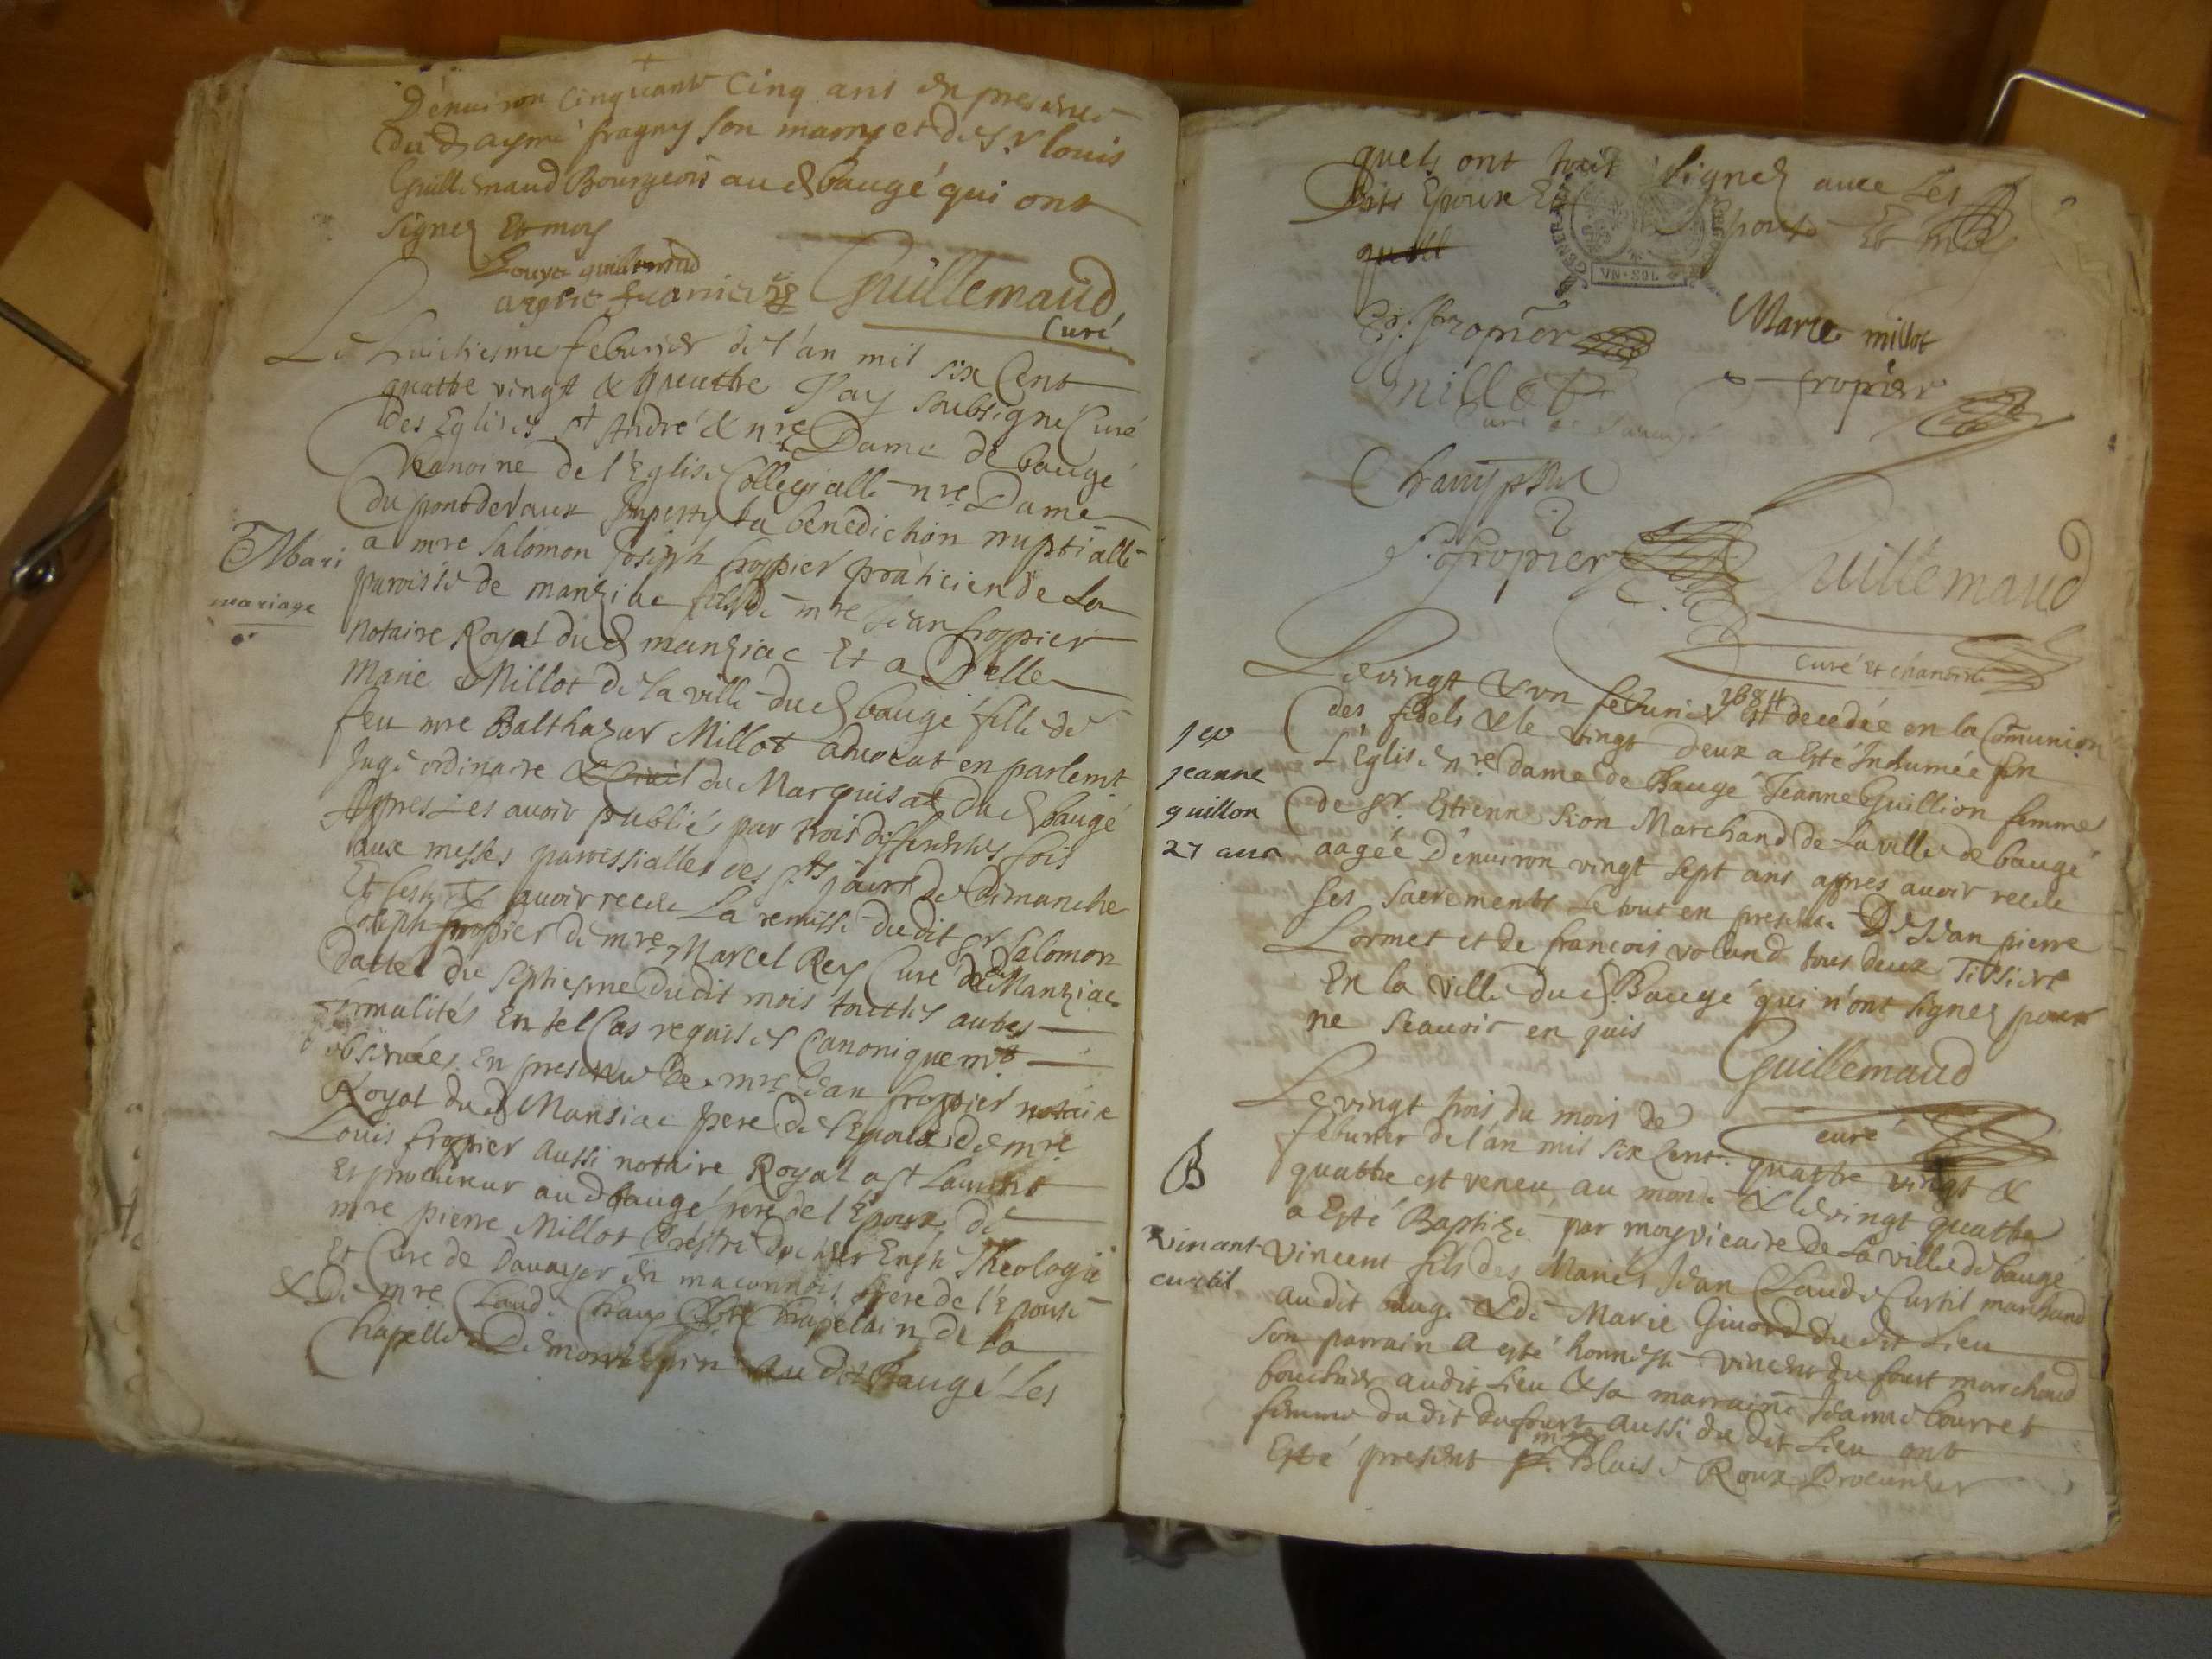 D'enuiron Cinquante Cinq ans en presence
du d aymé fragny son marry et de sr louis
Guillemaud Bourgeois au d baugé qui ont
signez Et moy
Louys guillemaud
Guillemaud
Curé
Le huictiesme feburier de l'an mil six Cent
quattre vingt & quattre J'ay soubsigné Curé
des Eglises st André & nre Dame de baugé
Chanoine de l'Eglise Collegialle nre Dame
du pontdevaux Imperty la benediction nuptialle
a mre Salomon Joseph froppier praticien de La
Mari
mariage
paroisse de manziac fils de mre Jean froppier
notaire Royal du d manziac Et a Delle
Marie Millot de la ville du d baugé fille de
feu mre Balthazar Millot advocat en parlemt
Juge ordinaire & Ciuil du Marquisat du d baugé
Appres Les auoir publiés par trois differentes fois
aux messes paroissialles des pts jours de dimanche
Et festes & auoir receu La remisse du dit sr Salomon
Joseph froppier de mre Marcel Rey Curé de Manziac
dattée du septiesme dudit mois touttes autres
formalités En tel Cas requises Canoniquemt
obseruées En presence de mre Jean froppier notaire
Royal du d Mansiac pere de l'Epoux de mre
Louis froppier aussi notaire Royal a st Laurent
Et procureur au d baugé frere de l'Epoux de
mre pierre Millot prestre docteur En ste Theologie
Et Curé de Dauayer en maconnois frere de l'Epouse
& De mre Claude Chanp Chapelain de la
Chapelle De montespin au dit Baugé Les
quels ont touts signez auec Les
Dits Epoux Et Epouse Et moy
GENER
UN·SOL
Marie millot
fropier
millot
fropier
Guillemaud
Curé et chanoine
Le vingt & vn feburier 1684 Est decedée en la Communion
des fidels & le vingt deux a Esté Inhumée en
L'Eglise nre dame de Baugé Jeanne Guillion femme
jeanne
guillon
27 ans
de sr. Estienne Sion Marchand de La ville de baugé
aagée D'enuiron vingt sept ans appres auoir receu
ses sacrements Le tout en presence De Jean pierre
Lormet et de françois voland tous deux Tissiere
En la ville du d. Baugé qui n'ont signez pour
ne scauoir en quis
Guillemaud
curé
Le vingt trois du mois de
feburier de l'an mil six Cent quattre vingt &
quattre est veneu au monde & le vingt quattre
B
a Esté Baptizé par moy vicaire de La ville de baugé
vincent
curtil
Vincent fils des Mariés Jean Claude Curtil marchand
au dit baugé & de Marie Giuord du dit Lieu
Son parrain a esté honneste vincent du fourt marchand
bouchier audit Lieu & sa marraine Jeanne bourret
femme du dit dufourt aussi du dit Lieu ont
Esté present mre Blaise Roux Procureur